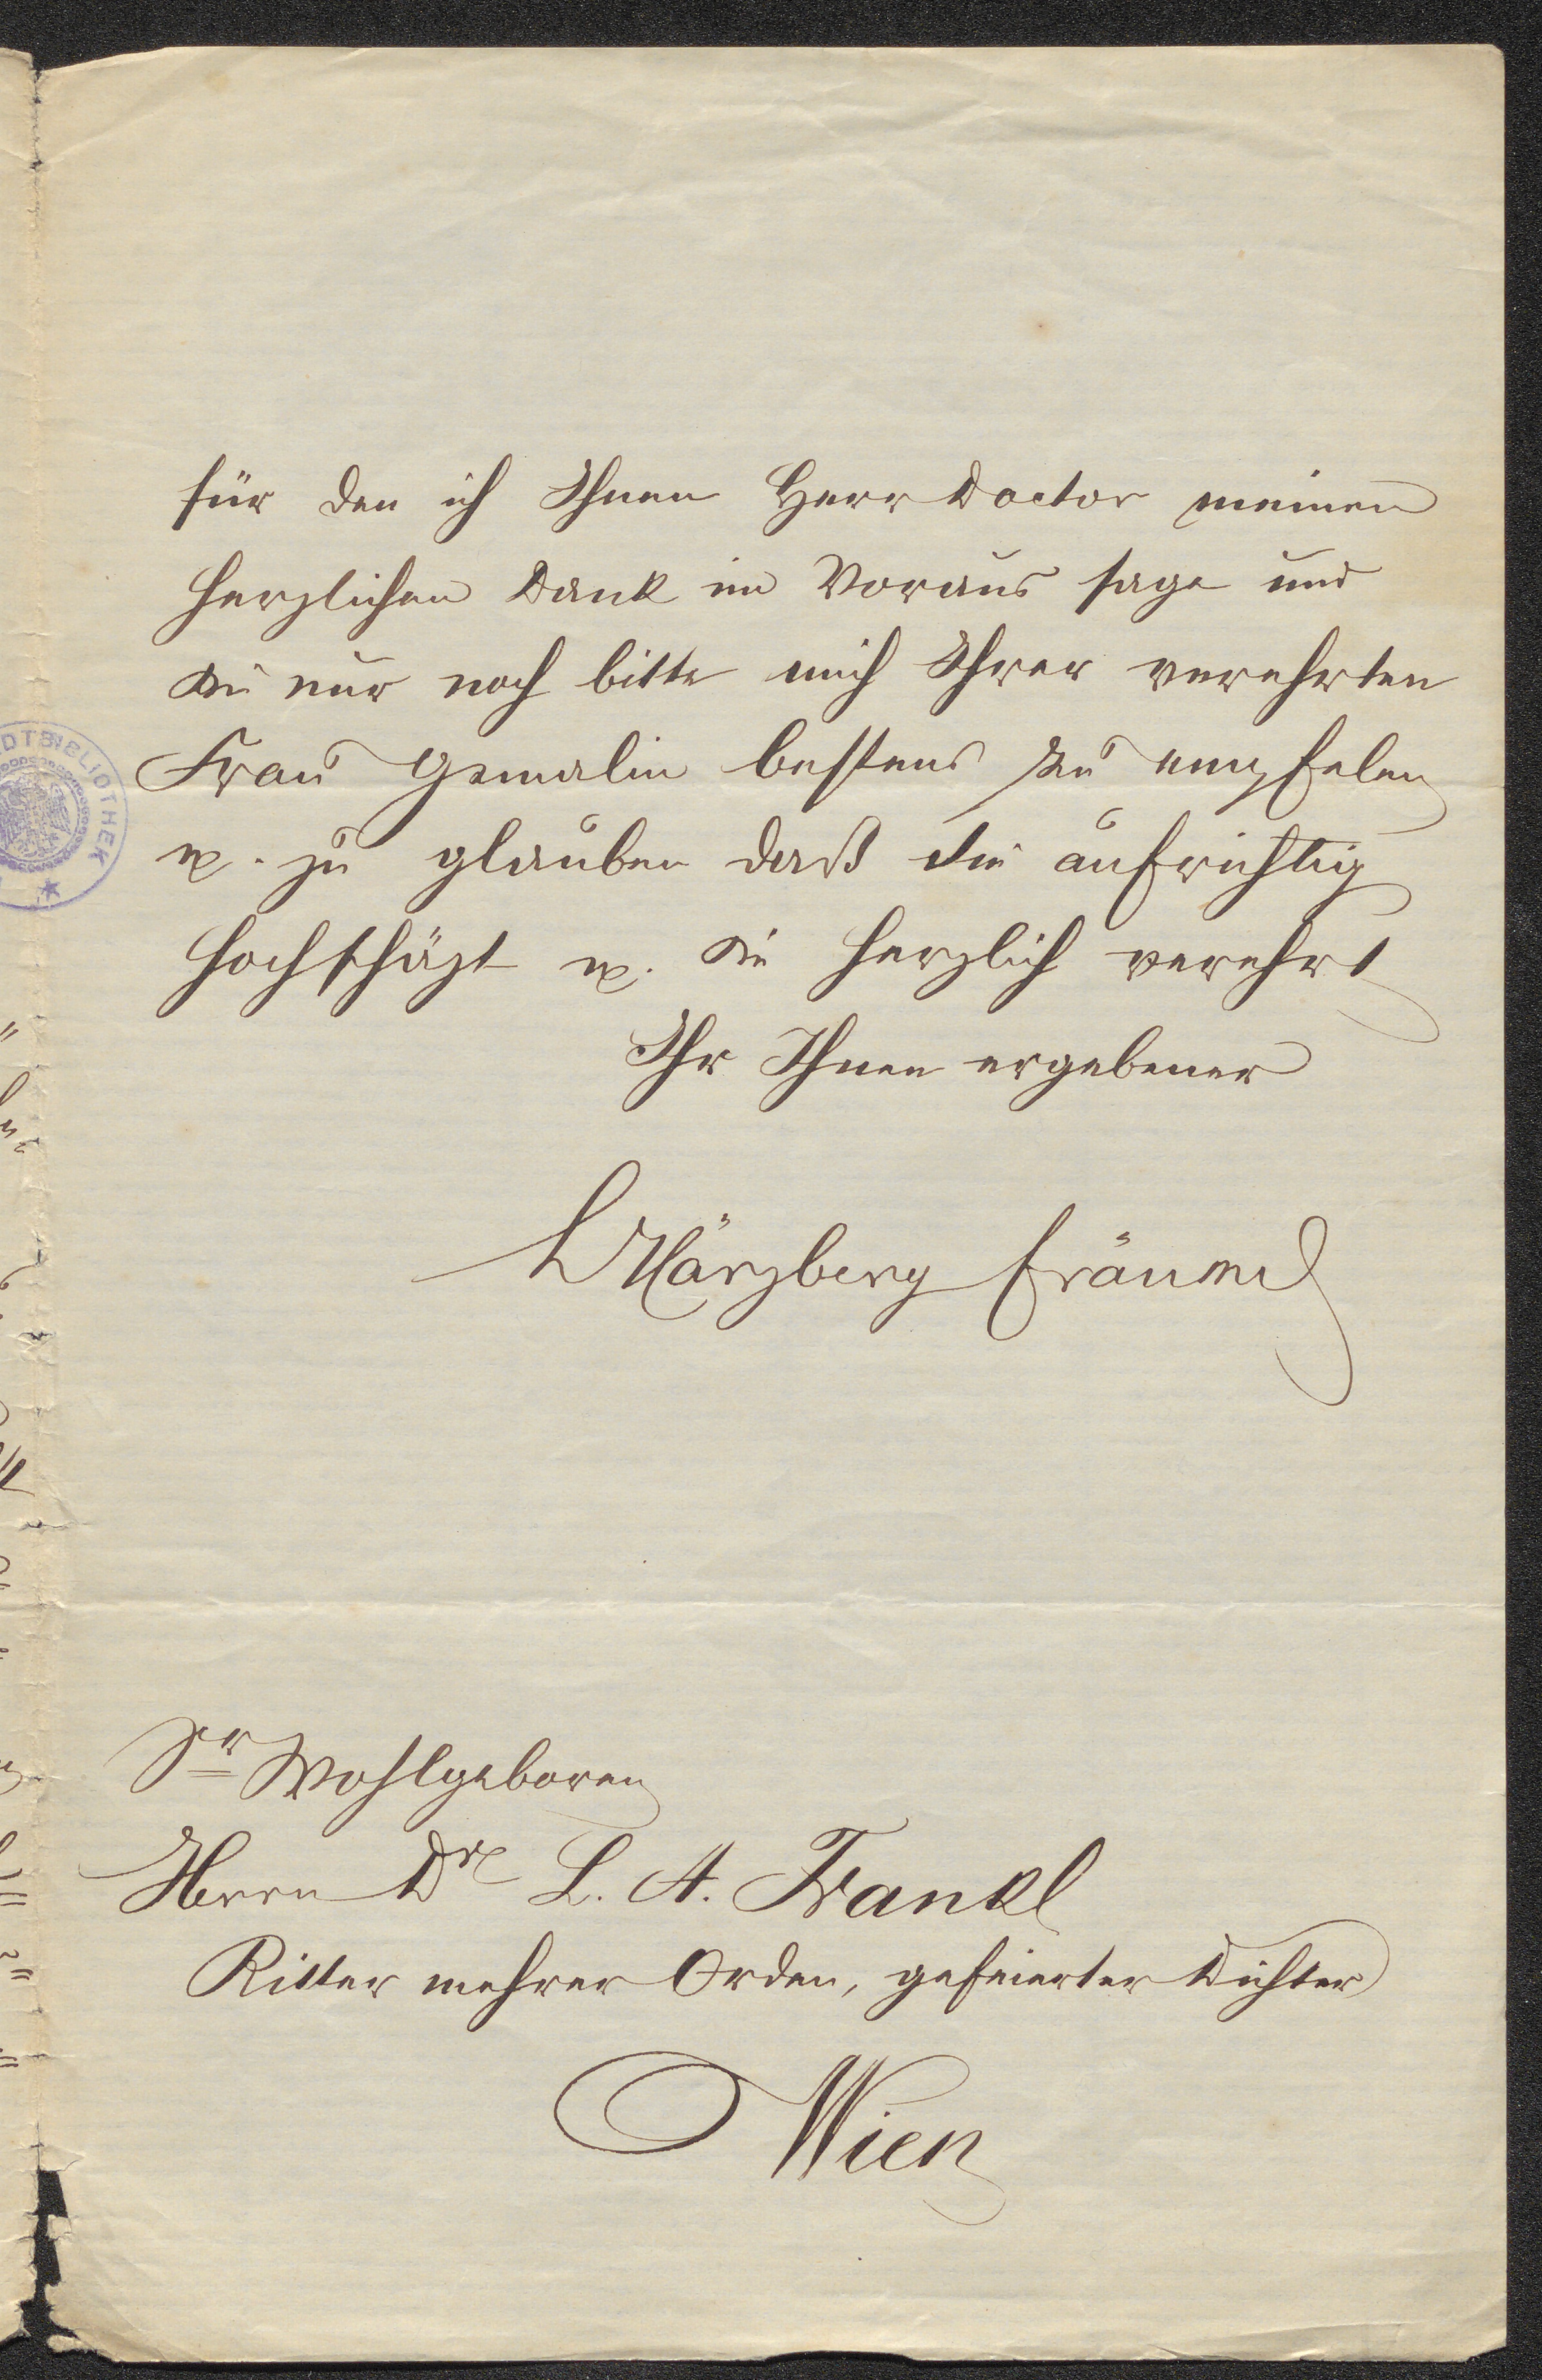 für den ich Ihnen Herr Doctor meinen
herzlichen Dank im Voraus sage und
Sie nur noch bitte mich Ihrer verehrten
Frau Gemalin bestens zu empfelen
u. zu glauben daß Sie aufrichtig
hochschäzt u. Sie herzlich verehrt
Ihr Ihnen ergebener
L Härzberg Fräunkl
Sr Wohlgeboren
Herrn Dr L. A. Frankl
Ritter mehrer Orden, gefeierter Dichter
Wien
DTBIBLIOTHEK